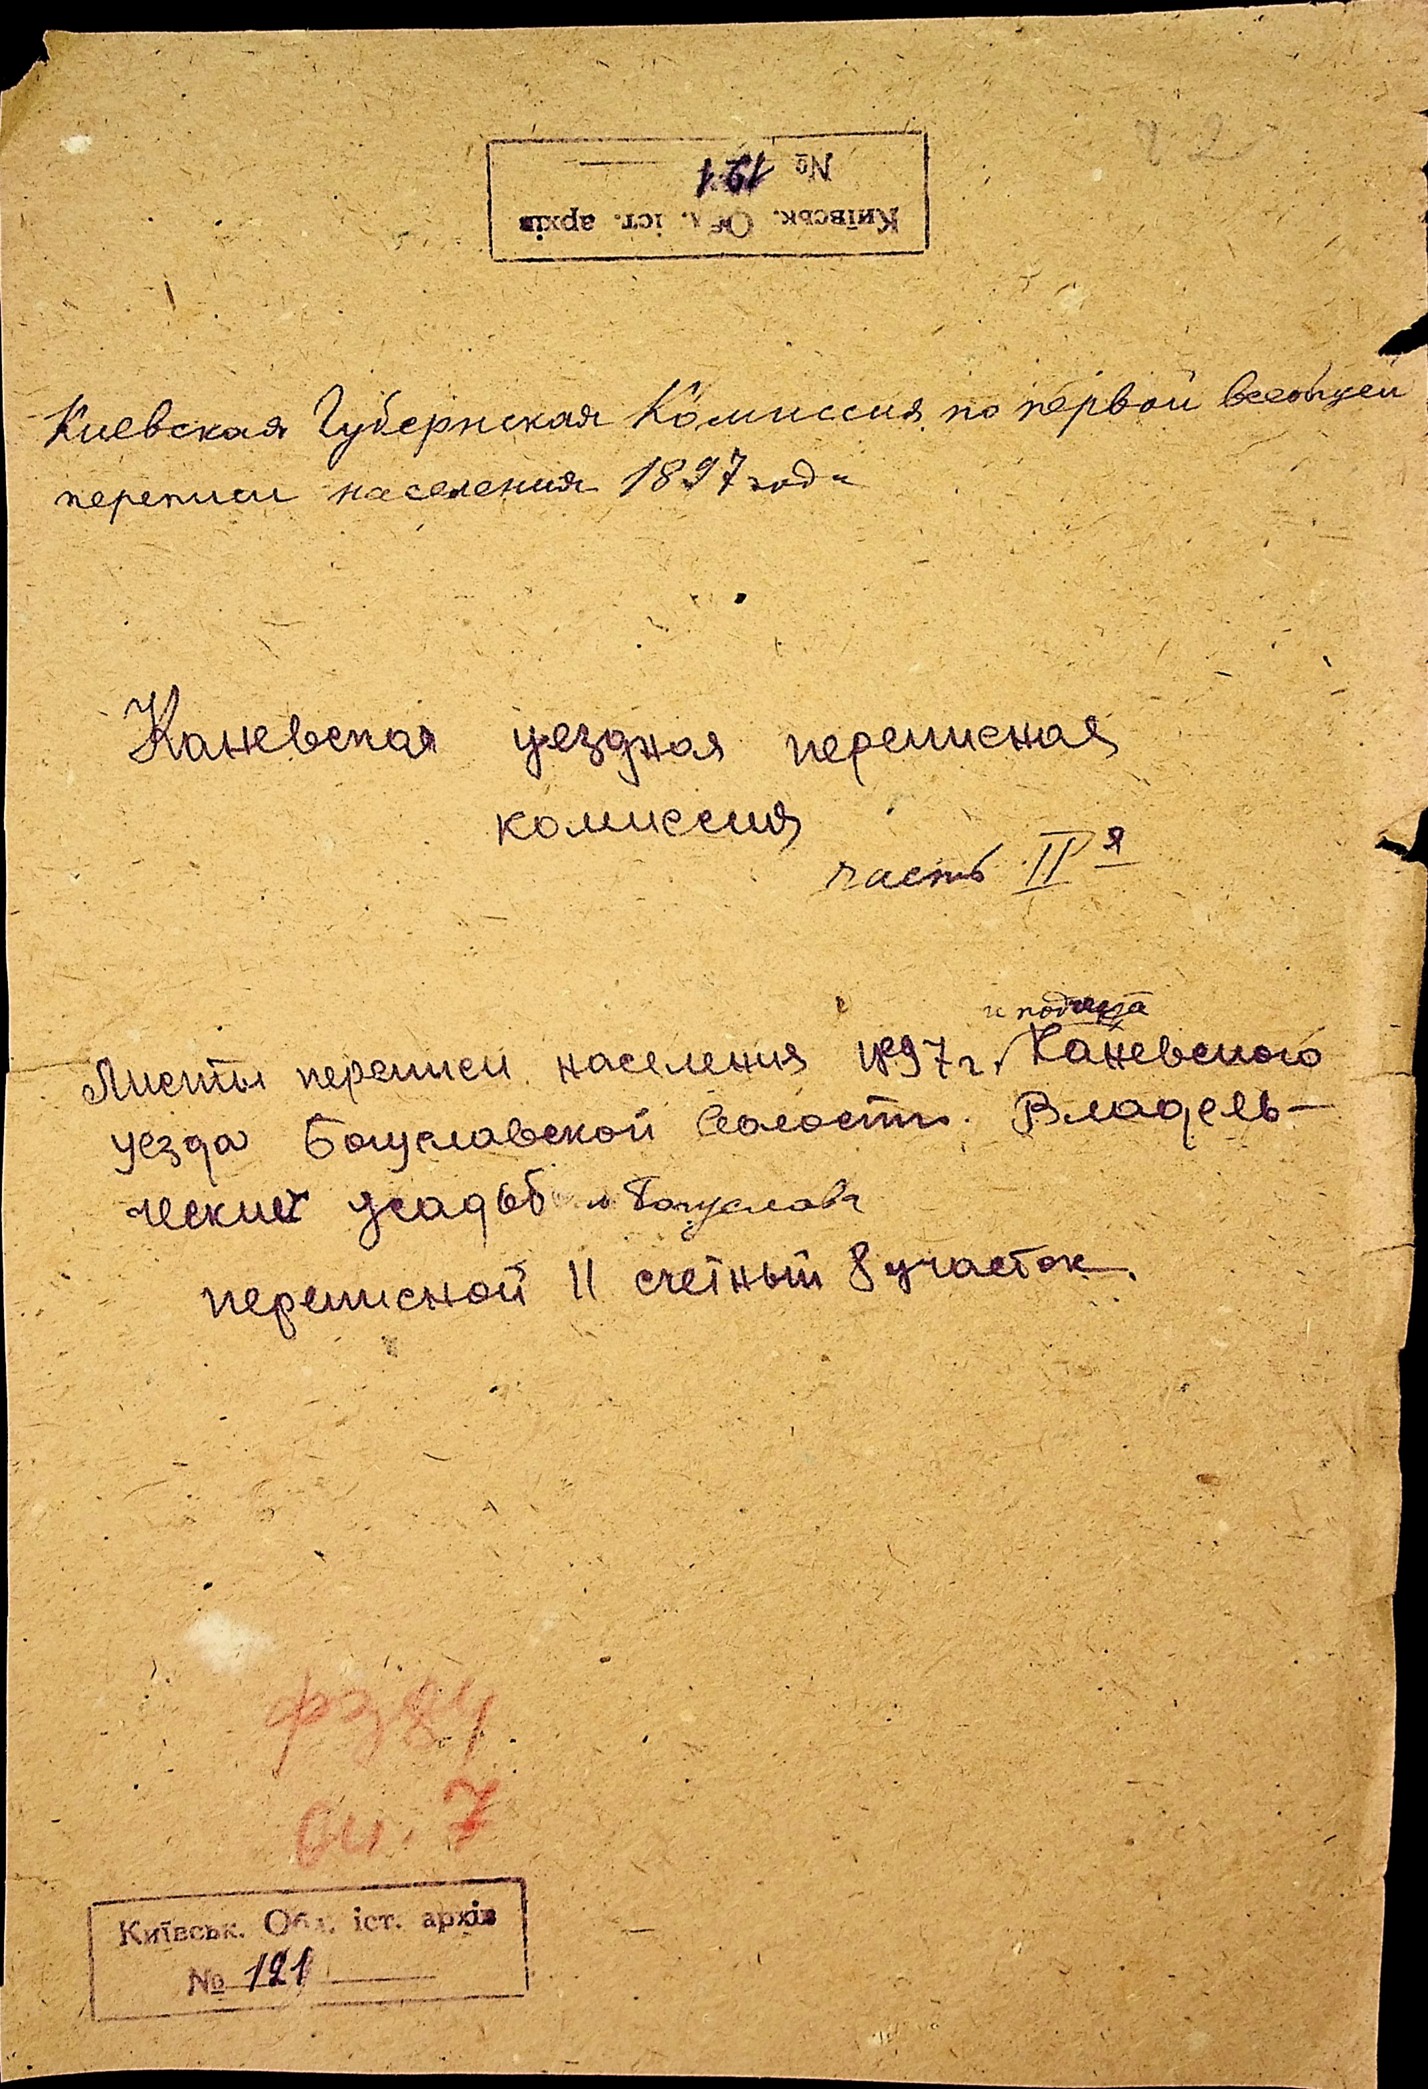 Київськ. Обл. іст. архів
№ 121
Киевская Губернская Комиссия по первой всеобщей
переписи населения 1897 года
Каневская уездная переписная
комиссия
часть II я
и подчета
Листы переписи населения 1897 г. Каневского
уезда Богуславской волости. Владель-
ческих усадьб м Богуслава
переписной II счетный 8 участок.
ф 384
оп. 7
Київськ. Обл. іст. архів
№ 121